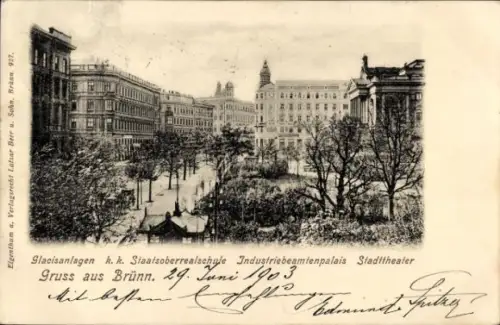 Eigenthum u. Verlagsrecht Lazar Beer u. Sohn, Brünn. 927.
Glacisanlagen k. k. Staatsoberrealschule Industriebeamtenpalais Stadttheater
Gruss aus Brünn. 29. Juni 1903
Mit besten Empfehlungen Edmund Spitzer